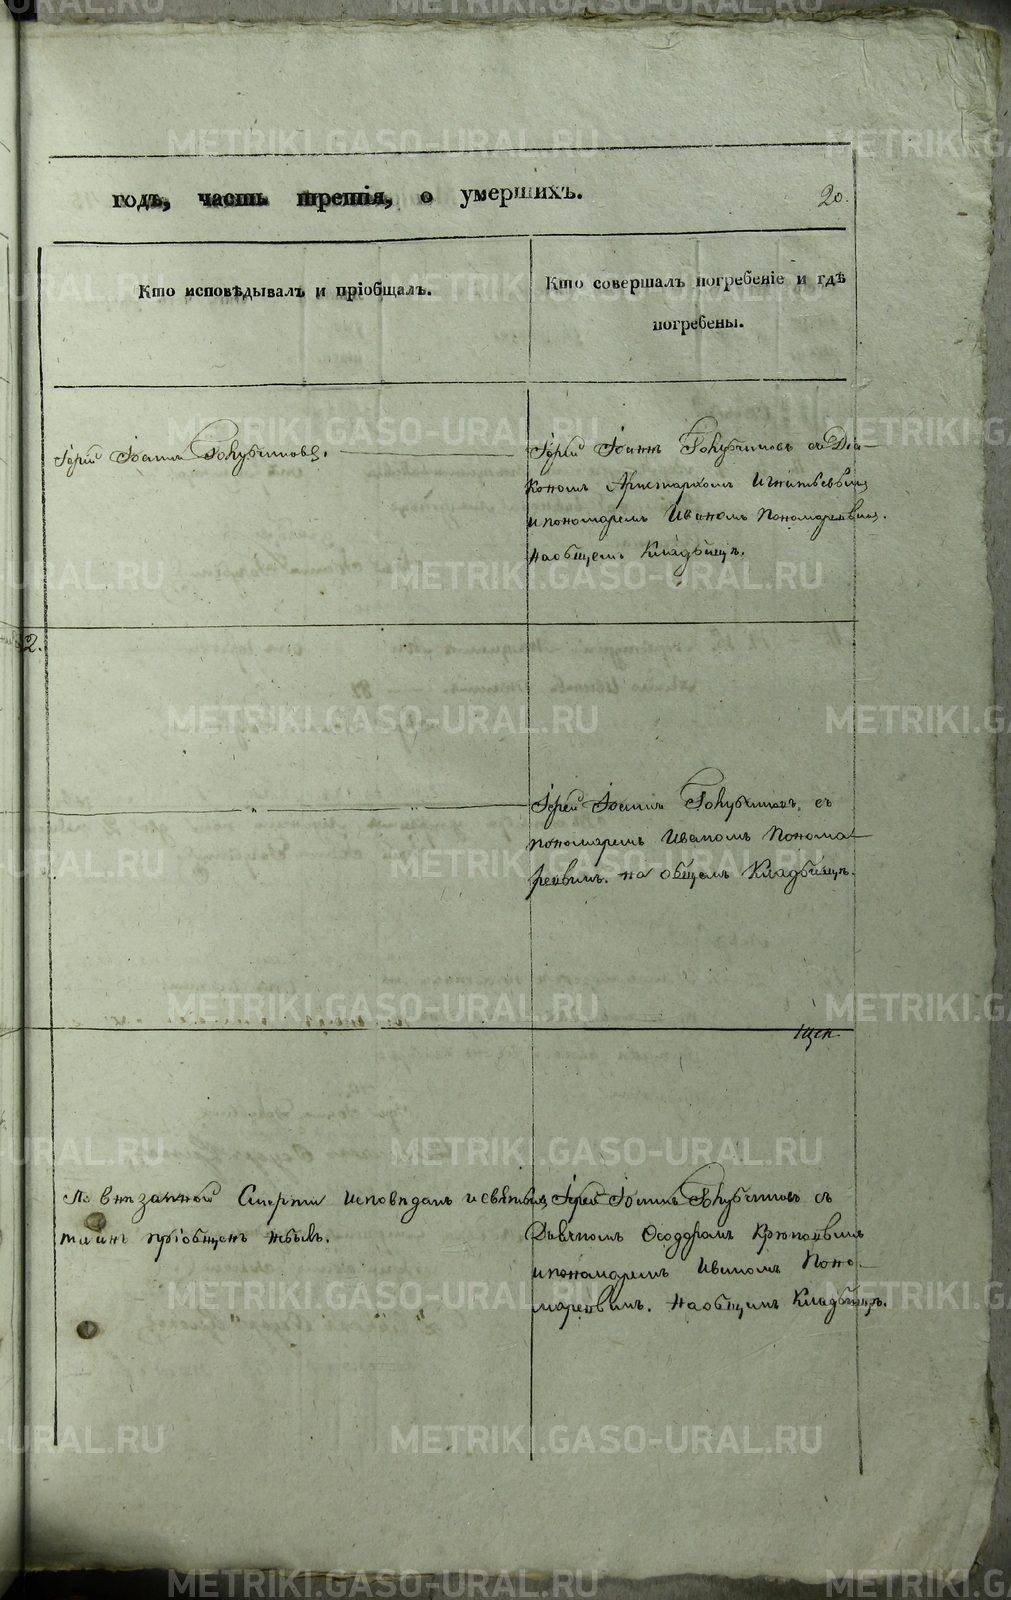 METRIKI.GASO-URAL.RU
годъ, часть третія, о умершихъ.
20.
Кто исповѣдывалъ и пріобщалъ.
Кто совершалъ погребеніе и гдѣ
погребены.
Іерей Іоаннъ Голубчиковъ.
Іерей Іоаннъ Голубчиковъ съ Діа
кономъ Аристархомъ Игнатьевымъ
и пономаремъ Иваномъ Пономаревымъ.
На общемъ Кладбищѣ.
2.
Іерей Іоаннъ Голубчиковъ, съ
пономаремъ Иваномъ Понома
ревымъ. на общемъ Кладбищѣ.
По внезапной Смерти исповѣданъ и святыхъ
таинъ пріобщенъ небылъ.
Іерей Іоаннъ Голубчиковъ съ
Дьячкомъ Ѳеодоромъ
и пономаремъ Иваномъ Поно
маревымъ. На общемъ Кладбищѣ.